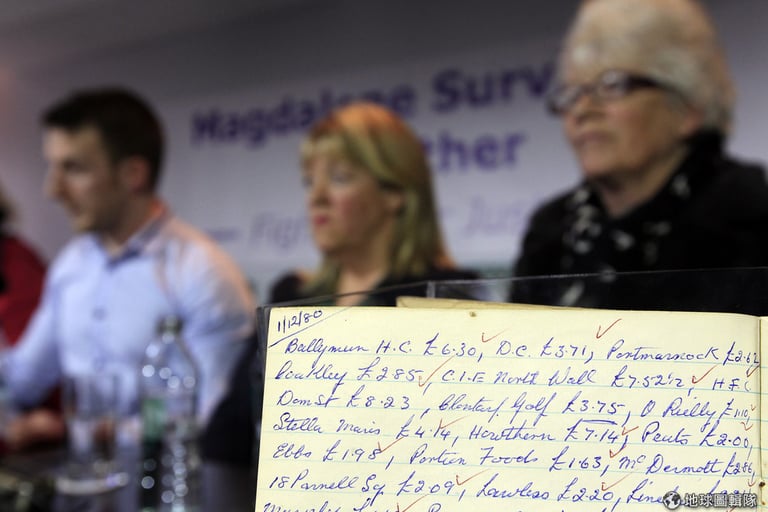 Magdalene Surv
ther
1/12/80
Ballymun H.C. £6.30, D.C. £3.71, Portmarnock £2.62
£2.85, C.I.E North Wall £7.52½, H.F.C
Dom St £8.23, Clontarf Golf £3.75, O Reilly £1.10,
Stella Maris £4.14, Hawthorn £7.14, Peuto £2.00,
Ebbs £1.98, Portion Foods £1.63, Mc Dermott £2.86,
18 Parnell Sq £2.09, Lawless £2.20,
地球圖輯隊